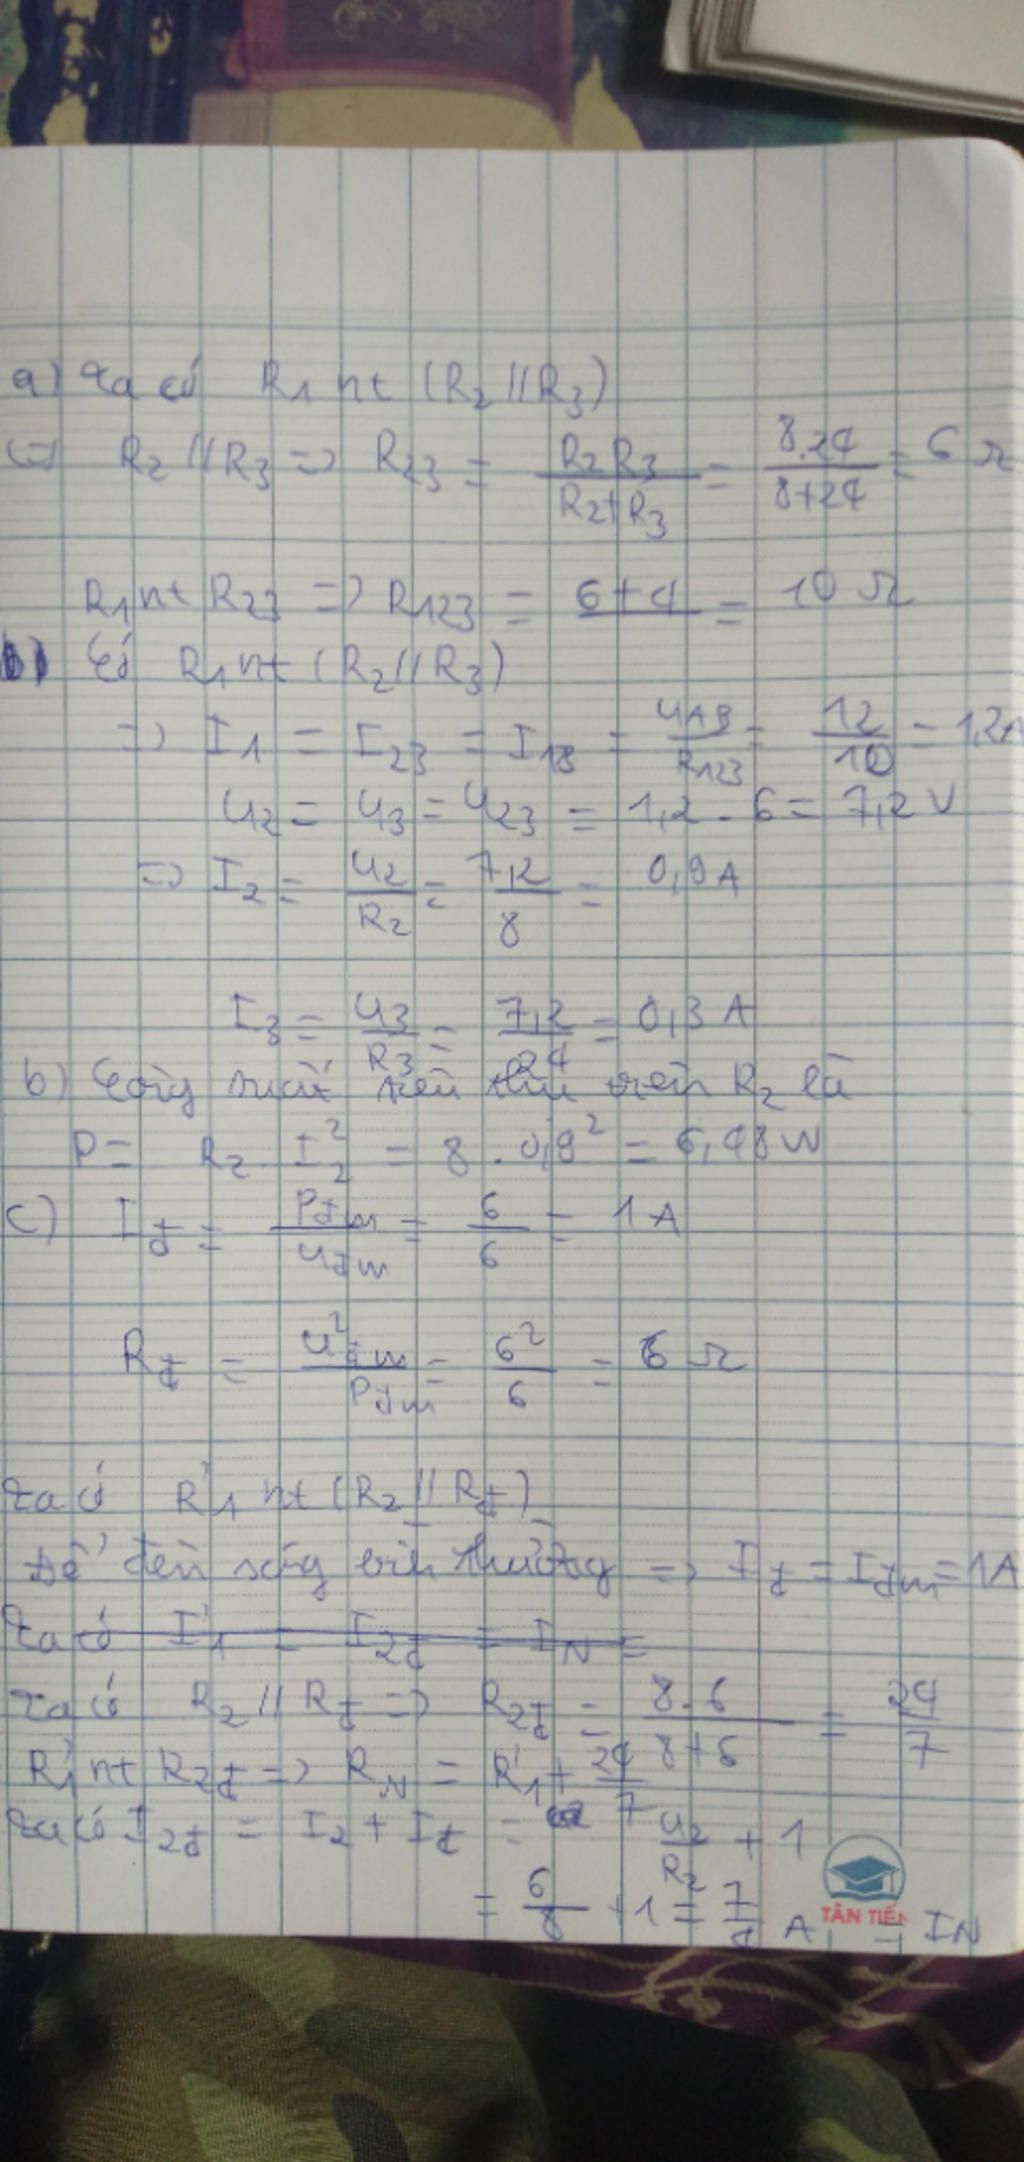 a) Ta có R1 nt (R2 // R3)
(=) R2 // R3 => R23 = R2R3 / R2+R3 = 8.24 / 8+24 = 6 Ω
R1 nt R23 => R123 = 6+4 = 10 Ω
b) Có R1 nt (R2 // R3)
=> I1 = I23 = I123 = UAB / R123 = 12 / 10 = 1,2A
U2 = U3 = U23 = 1,2 . 6 = 7,2 V
=> I2 = U2 / R2 = 7,2 / 8 = 0,9 A
I3 = U3 / R3 = 7,2 / 24 = 0,3 A
b) Công suất tiêu thụ trên R2 là
P = R2 I2² = 8 . 0,9² = 6,48 W
c) Iđ = Pđm / Uđm = 6 / 6 = 1 A
Rđ = U²đm / Pđm = 6² / 6 = 6 Ω
ta có R'1 nt (R2 // Rđ)
Để đèn sáng bình thường => Iđ = Iđm = 1A
Ta có I'1 = I2đ = IN =
Ta có R2 // Rđ => R2đ = 8.6 / 8+6 = 24 / 7
R'1 nt R2đ => RN = R'1 + 24 / 7
Ta có I2đ = I2 + Iđ = U2 / R2 + 1
= 6 / 8 + 1 = 7 / 4 A = IN
TÂN TIẾN